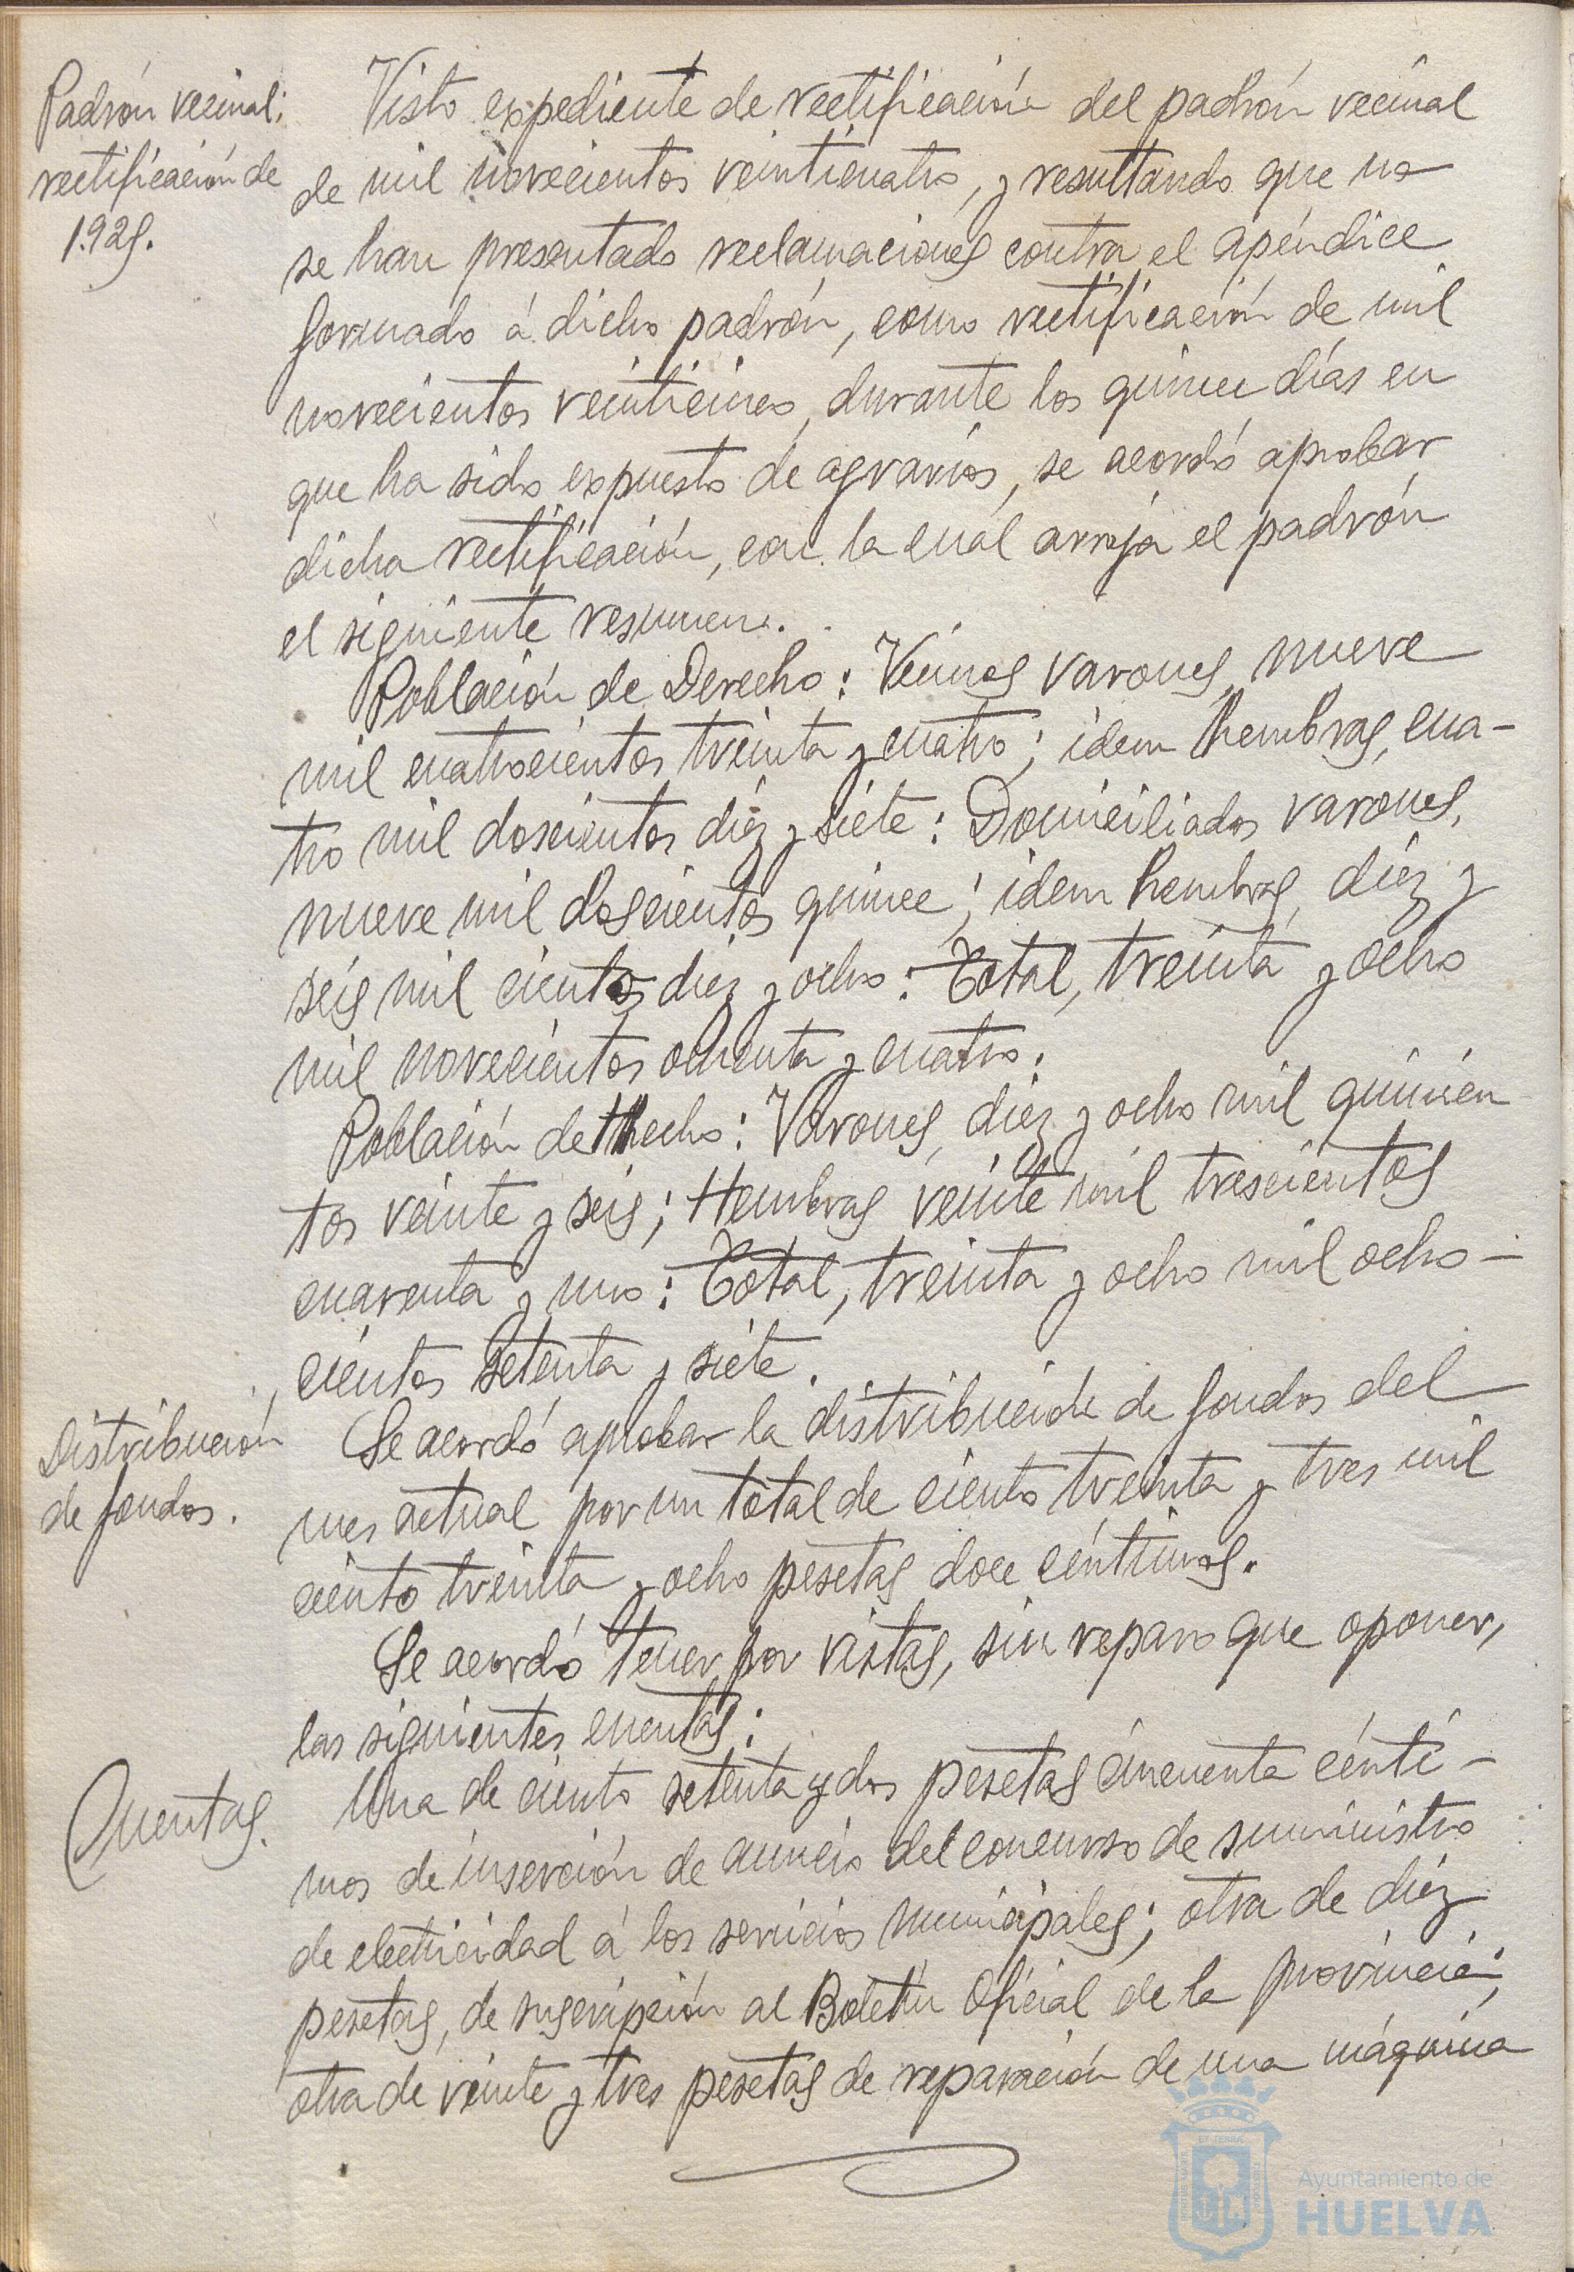 Padrón vecinal:
rectificación de
1.925.
Visto expediente de rectificación del padrón vecinal
de mil novecientos veinticuatro, y resultando que no
se han presentado reclamaciones contra el apéndice
formado á dicho padrón, como rectificación de mil
novecientos veinticinco, durante los quince días en
que ha sido expuesto de agravios, se acordó aprobar
dicha rectificación, con la cuál arroja el padrón
el siguiente resumen.
Población de Derecho: Vecinos varones, nueve
mil cuatrocientos treinta y cuatro; idem hembras, cua-
tro mil doscientos diéz y siete: Domiciliados varones,
nueve mil doscientos quince; idem hembras, diéz y
seis mil ciento diez y ocho: Total, treinta y ocho
mil novecientos ochenta y cuatro.
Población de Hecho: Varones, diez y ocho mil quinien
tos veinte y seis; Hembras veinte mil trescientos
cuarenta y uno: Total, treinta y ocho mil ocho-
cientos setenta y siete.
Distribución
de fondos.
Se acordó aprobar la distribución de fondos del
mes actual por un total de ciento treinta y tres mil
ciento treinta y ocho pesetas doce céntimos.
Se acordó tener por vistas, sin reparo que oponer,
las siguientes cuentas:
Cuentas.
Una de ciento setenta y dos pesetas cincuenta cénti-
mos de inserción de anuncio del concurso de suministro
de electricidad á los servicios municipales; otra de diéz
pesetas, de suscripción al Boletín Oficial de la provincia;
otra de veinte y tres pesetas de reparación de una máquina
Ayuntamiento de
HUELVA